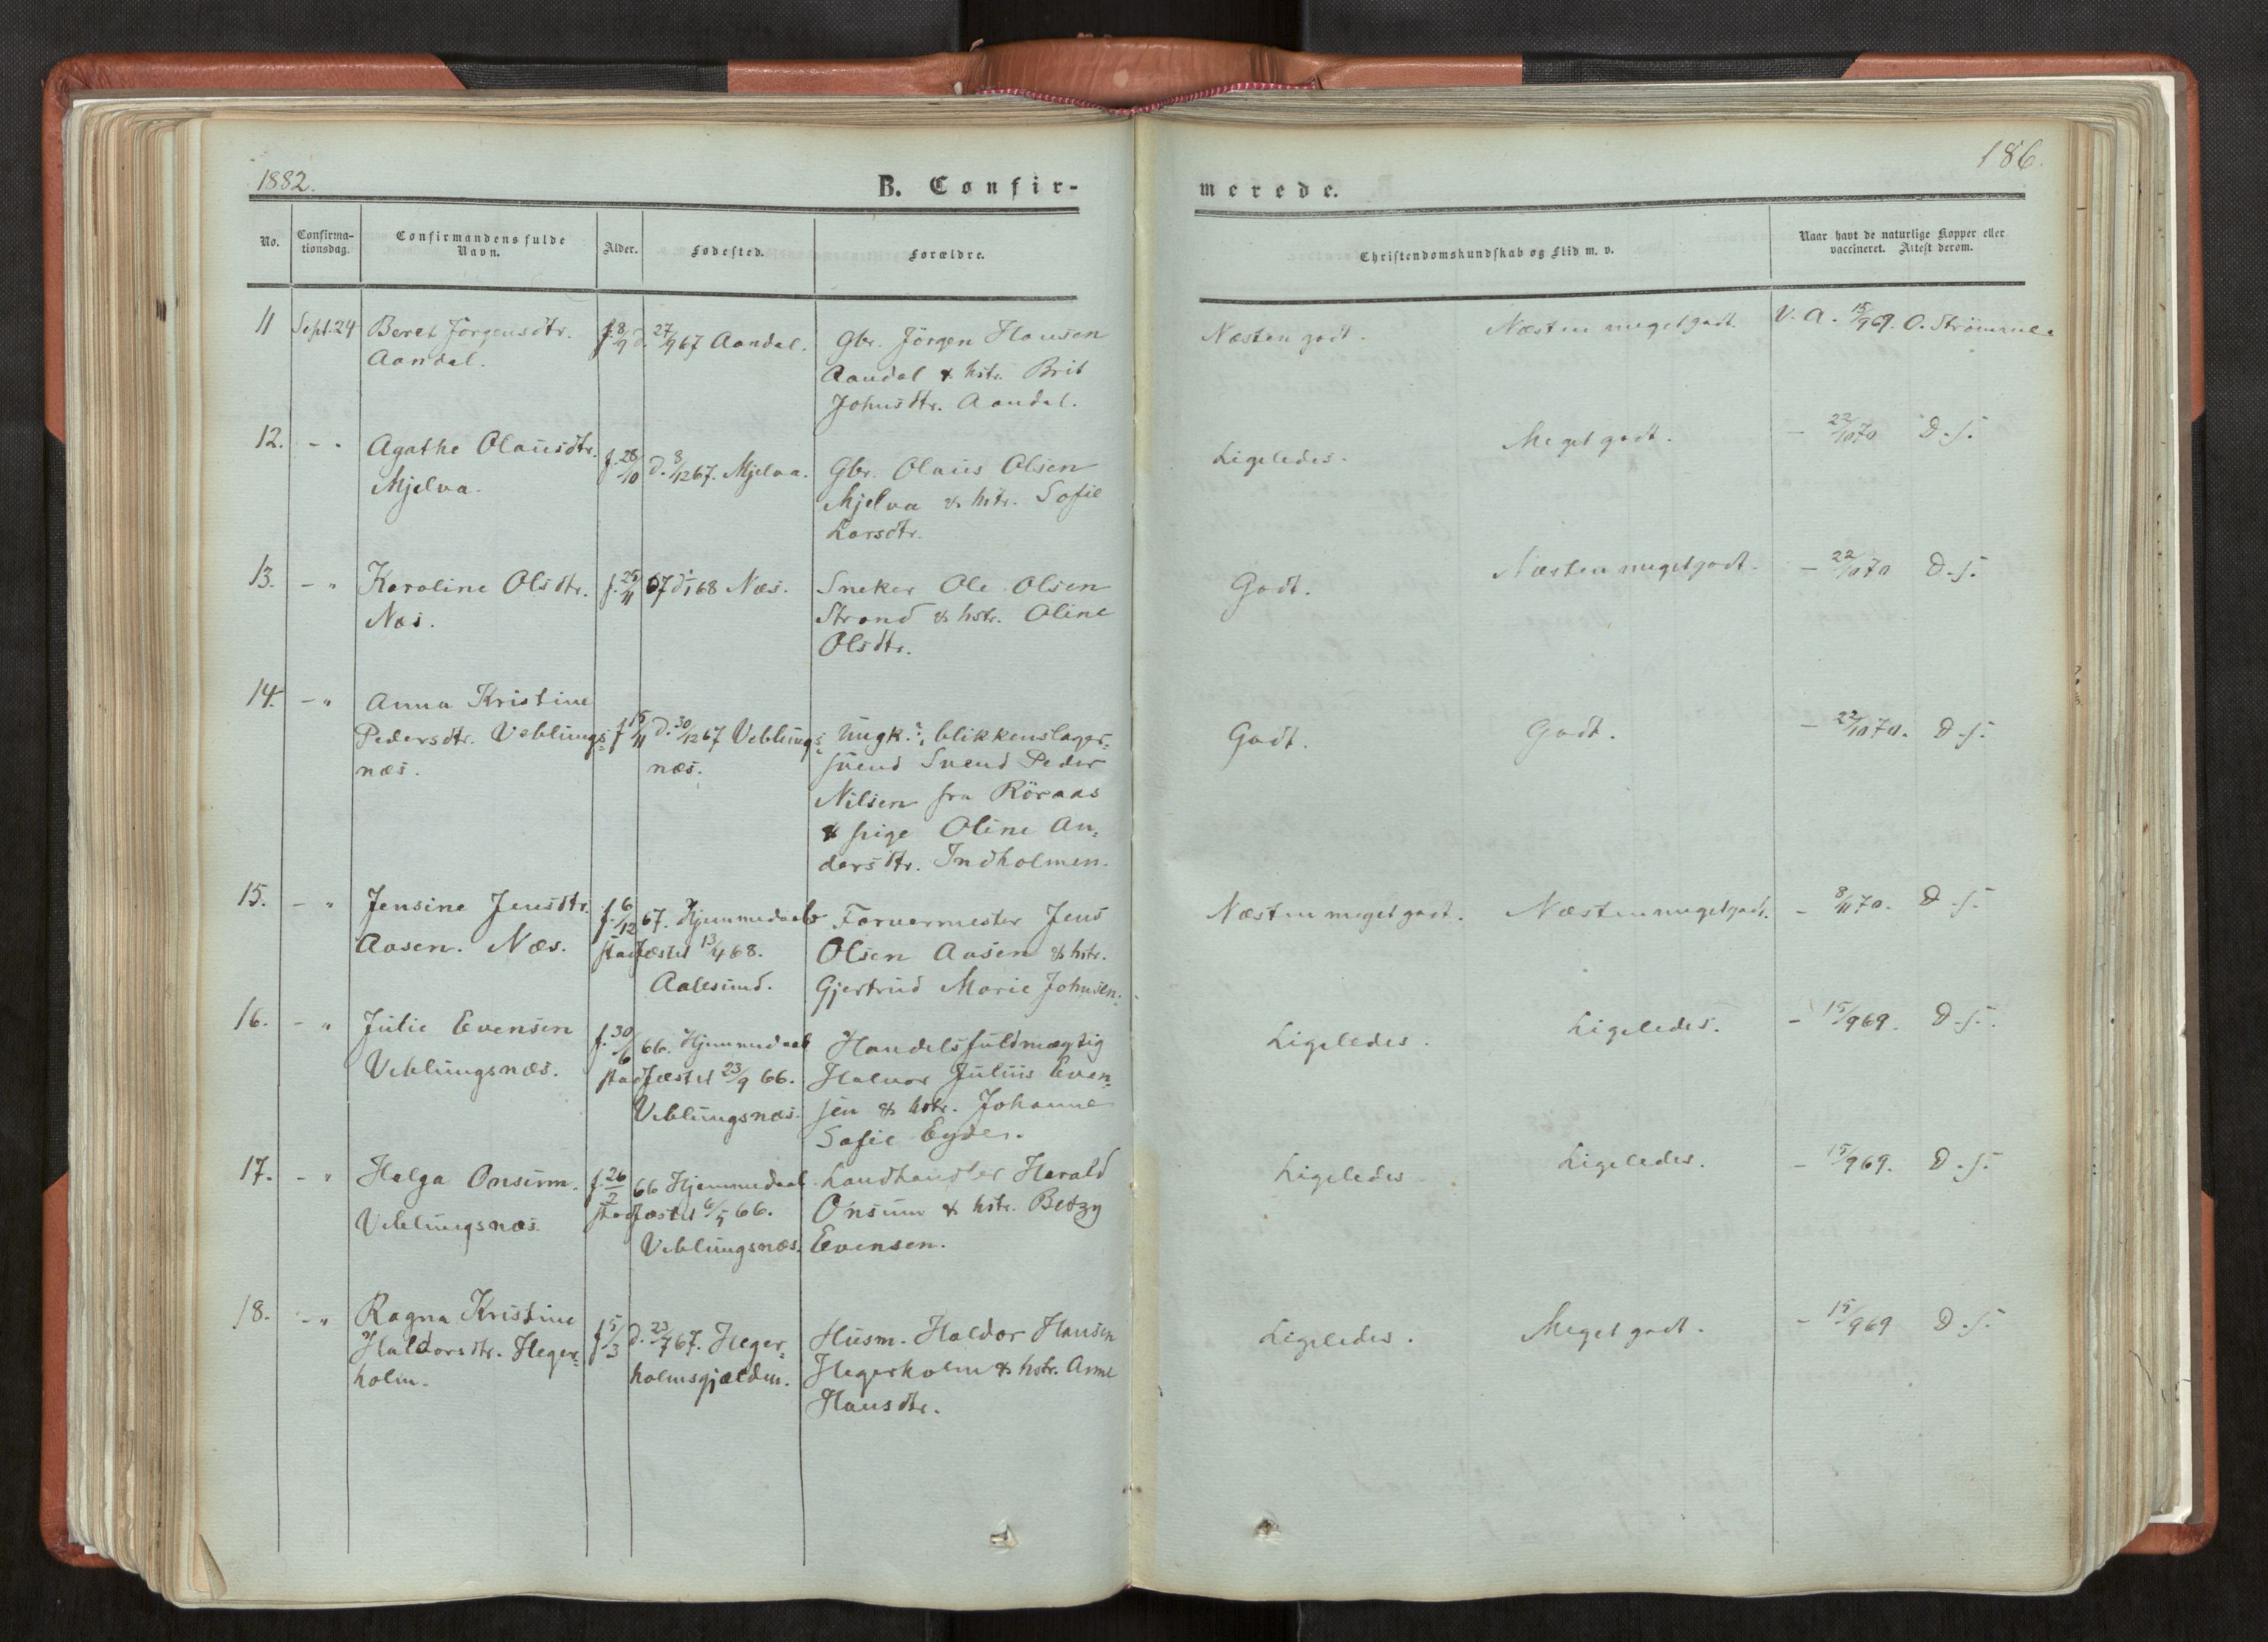 1882.
B. Confir-
No.
Confirma-
tionsdag.
Confirmandens fulde
Navn.
Alder.
Fødested.
Forældre.
11 Sept. 24 Beret Jörgensdtr. f. 8/9 d. 27/9 67 Aandal. Gbr. Jörgen Hansen
Aandal. Aandal & hstr. Brit
Johnsdtr. Aandal.
12. - „ Agathe Olausdtr. f. 28/10 d. 8/12 67. Mjelva. Gbr. Olaus Olsen
Mjelva. Mjelva & hstr. Sofie
Larsdtr.
13. - „ Karoline Olsdtr. f. 25/11 67 d. 1/1 68 Næs. Sneker Ole Olsen
Næs. Strand & hstr. Oline
Olsdtr.
14. - „ Anna Kristine
Pedersdtr. Veblungs- f 15/11 d. 30/12 67 Veblungs- Ungk. blikkenslager-
næs. næs. svend Svend Peder
Nilsen fra Röraas
& pige Oline An-
dersdtr. Indholmen.
15. - „ Jensine Jensdtr. f. 6/12 67. Hjemmedaab Farvermester Jens
Aasen. Næs. stadfæstet 13/4 68. Olsen Aasen & hstr.
Aalesund. Gjertrud Marie Johnsen.
16. - „ Julie Evensen f. 30/6 66. Hjemmedaab Handelsfuldmægtig
Veblungsnæs. stadfæstet 23/9 66. Halvor Julius Even-
Veblungsnæs. sen & hstr. Johanne
Sofie Eyde.
17. - „ Helga Onsum. f. 26/2 66 Hjemmedaab Landhandler Harald
Veblungsnæs. stadfæstet 6/5 66. Onsum & hstr. Betzy
Veblungsnæs. Evensen.
18. - „ Ragna Kristine
Haldorsdtr. Heger- f 5/3 d. 23/7 67. Heger- Husm. Haldor Hansen
holm. holmsgjælden. Hegerholm & hstr. Anne
Hansdtr.
186.
merede.
Christendomskundskab og Flid m. v.
Naar havt de naturlige Kopper eller
vaccineret. Attest derom.
Næsten godt. Næsten megetgodt. V. A. 15/9 69. O. Strömme.
Ligeledes. Meget godt. - 22/10 70 D. s.
Godt. Næsten megetgodt. - 22/10 70 D. s.
Godt. Godt. - 22/10 70. D. s.
Næsten megetgodt. Næsten megetgodt. - 8/11 70. D. s.
Ligeledes. Ligeledes. - 15/9 69. D. s.
Ligeledes Ligeledes. - 15/9 69. D. s.
Ligeledes. Meget godt. - 15/9 69 D. s.